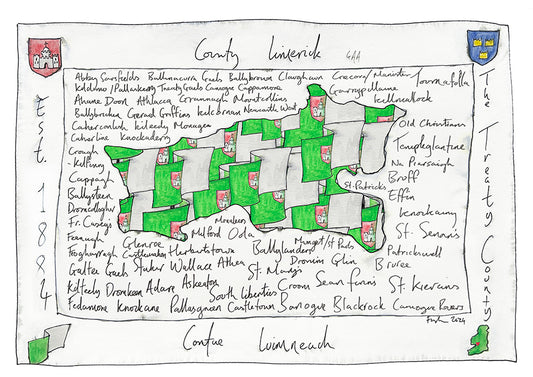 County Limerick GAA
Est. 1884
The Treaty County
Abbey Sarsfields Ballinacurra Gaels Ballybrown Claughaun Crecora/Manister Tournafulla
Kildimo/Pallaskenry Treaty Gaels Camogue Cappamore Garryspillane
Ahane Doon Athlacca Granagh Mountcollins Killeedy
Ballybricken Gerald Griffins Kilcornan Newcastle West
Caherconlish Kileedy Monagea Old Christians
Caherline Knockaderry Templeglantine
Croagh Na Piarsaigh
Kilfinny St. Patricks Broff
Cappagh Effin
Ballysteen Knockainy
Dromcollogher St. Senans
Fr. Caseys Monaleen
Feenagh Glenroe Milford Oda Mungret/St Pauls Patrickswell
Feoghanagh Castlemahon Herbertstown Ballylanders Dromin Glin Bruree
Galtee Gaels Staker Wallace Athea St. Mary's
Kilteely Dromkeen Adare Askeaton Croom Sean Finns St. Kierans
South Liberties
Fedamore Knockane Pallasgreen Castletown Banogue Blackrock Camogue Rovers
2024
Contae Luimneach